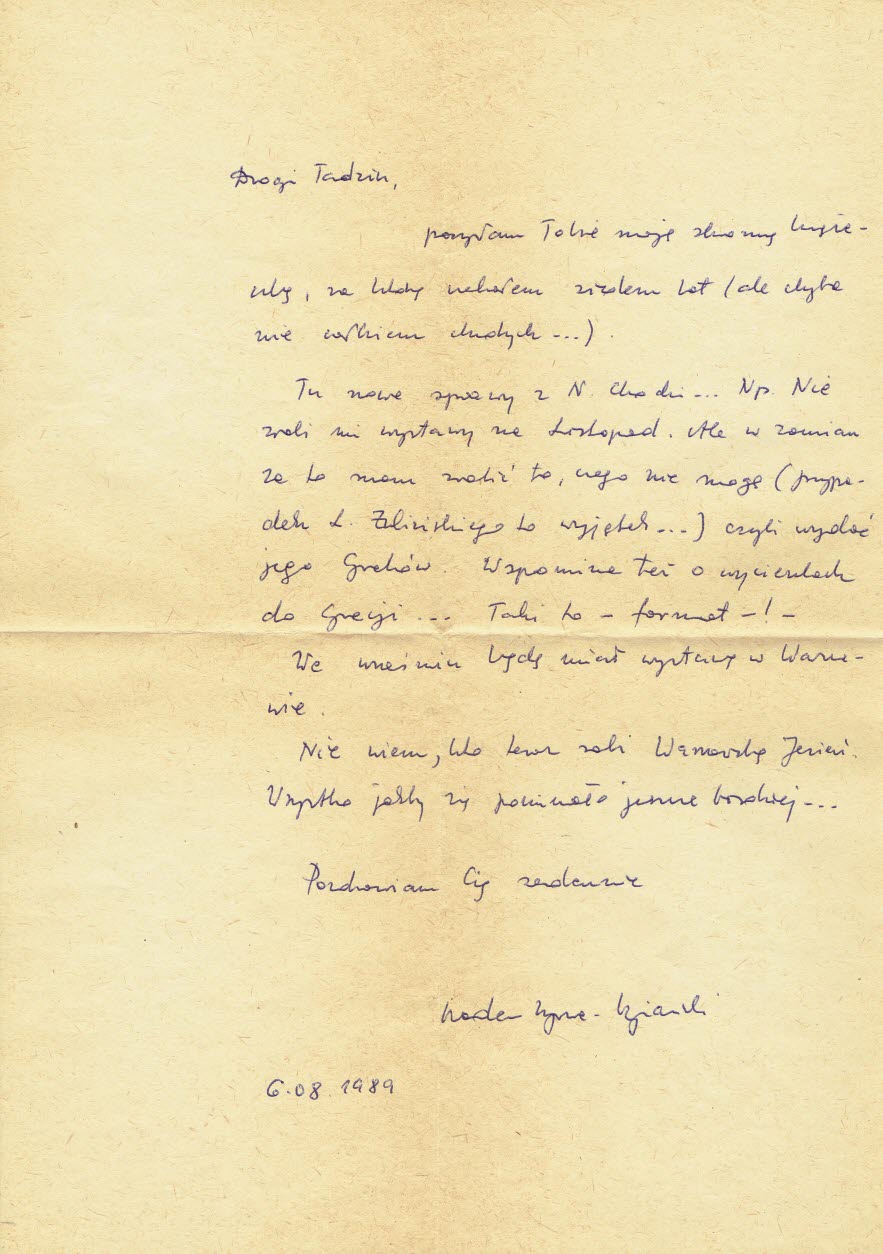 Drogi Tadziu,
posyłam Tobie moję skromną książe-
czkę, na którą czekałem siedem lat (ale chyba
nie całkiem chudych ---).
Tu nowe sprawy z N. Chadzi... Np. Nie
zrobi mi wystawy na Listopad. Ale w zamian
za to mam zrobić to, czego nie mogę (przypa-
dek L. Zelińskiego to wyjątek ---) czyli wydać
jego Greków. Wspomina też o wycieczkach
do Grecji ... Taki to - format - ! -
We wrześniu będę miał wystawę w Warsza-
wie.
Nie wiem, kto teraz robi Warszawską Jesień.
Wszystko jakby się pomieszało jeszcze bardziej ---
Pozdrawiam Cię serdecznie
6.08.1989